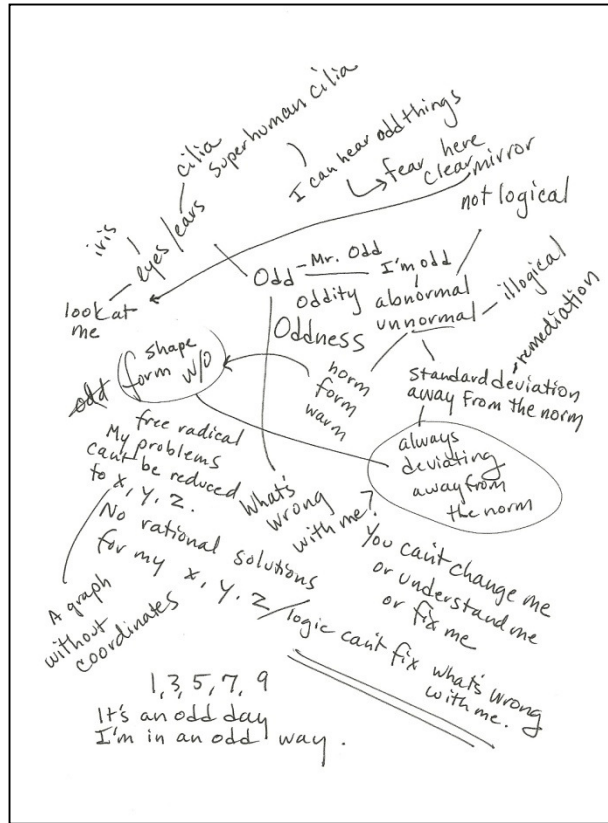 cilia
superhuman cilia
I can hear odd things
fear here
clear mirror
not logical
iris
eyes/ears
Odd
Mr. Odd
I'm odd
look at
me
oddity
abnormal
unnormal
illogical
Oddness
remediation
odd
shape
form w/o
norm
form
warm
standard deviation
away from the norm
free radical
My problems
can't be reduced
to x, y, z.
always
deviating
away from
the norm
What's
wrong
with me?
No rational solutions
for my x, y, z/logic can't fix what's wrong
with me.
You can't change me
or understand me
or fix me
A graph
without
coordinates
1, 3, 5, 7, 9
It's an odd day
I'm in an odd way.